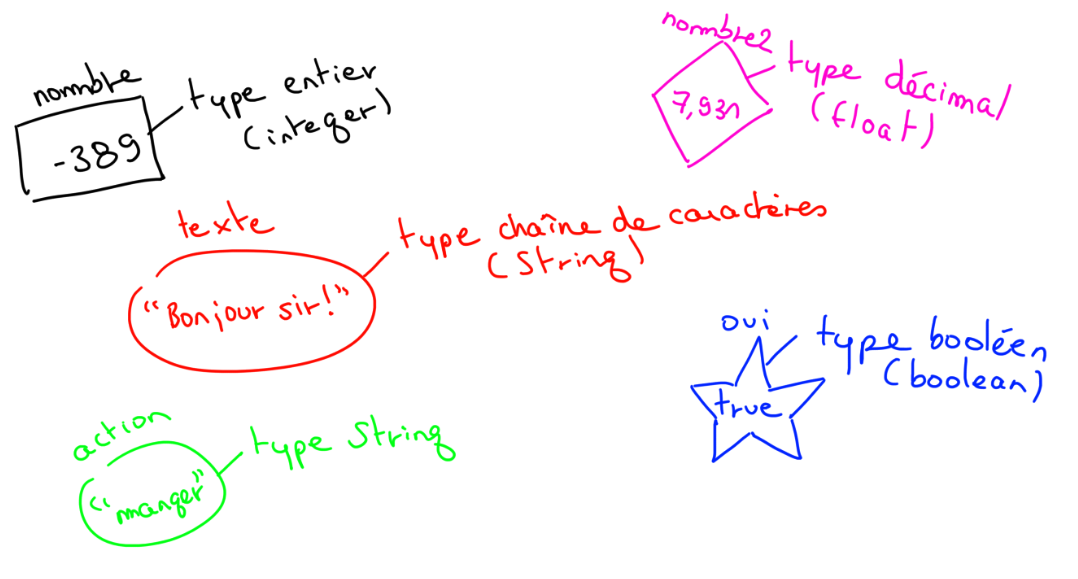 nommbre
-389
type entier
(integer)
nommbre2
7,931
type décimal
(float)
texte
"Bonjour sir!"
type chaîne de caractères
(String)
oui
true
type booléen
(boolean)
action
"manger"
type String